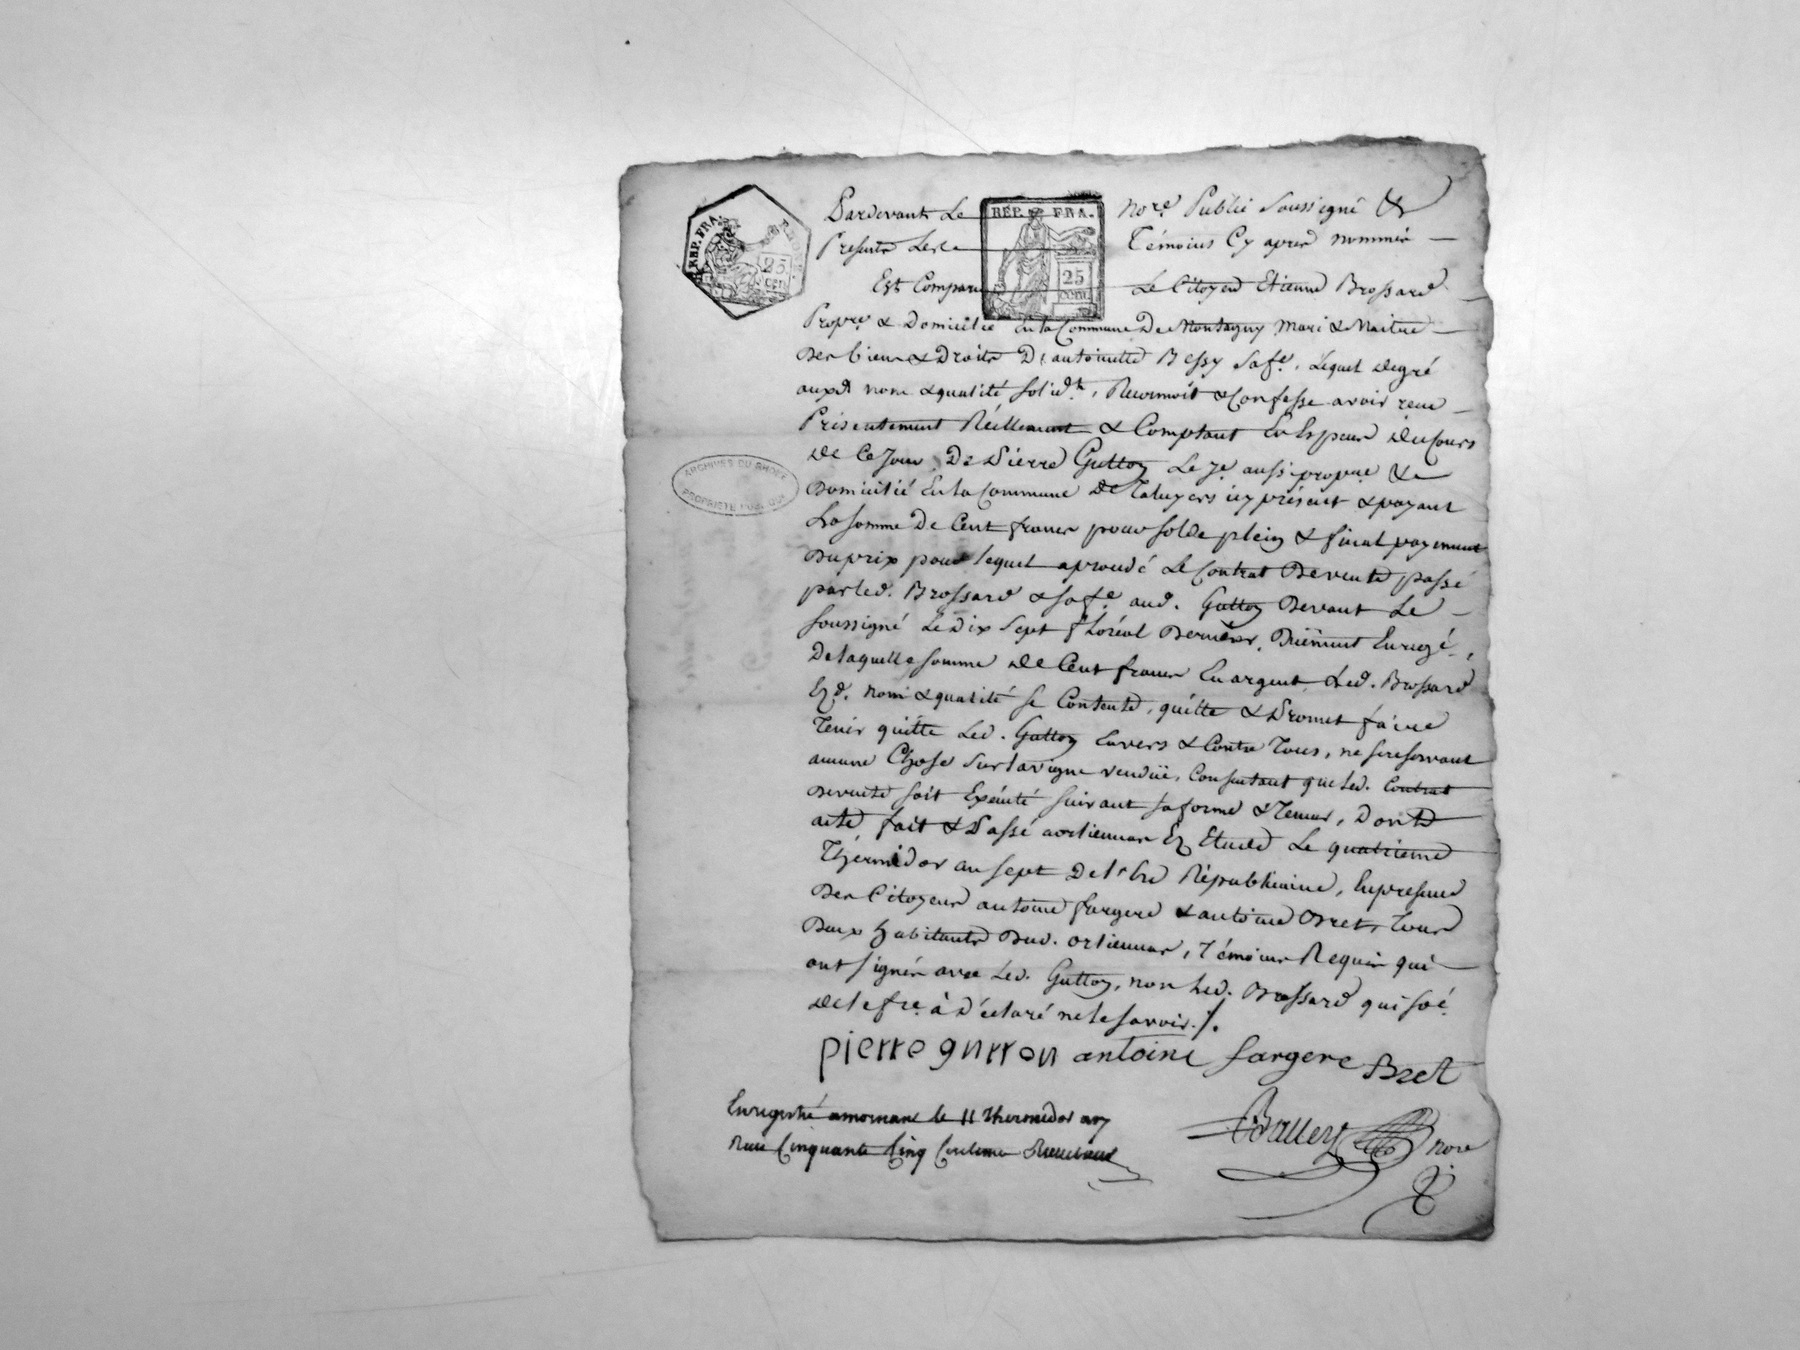 REP. FRA.
25
CEN
REP. FRA.
25
CENT.
Pardevant Le Nore. Public Soussigné &
Presents Les Témoins Cy après nommés
Est Comparu Le Citoyen Etienne Brossard
Propre. & Domicilié En la Commune De Montagny Mari & Maitre
Des biens & Droits D'antoinette Bessy Sa fe. Lequel degré
auxd. nom & qualité solidt., Reconnoit & Confesse avoir reçu
Présentement Réellement & Comptant En Espèces du Cours
de Ce Jour, De Pierre Gutton Le Je. aussi propre. &
Domicilié En la Commune de Taluyers icy présent & payant
La Somme De Cent francs pour solde plein & final payement
Du prix pour lequel a procédé Le Contrat De vente passé
par led. Brossard & sa fe. aud. Gutton Devant Le
soussigné Le Dix Sept floréal Dernier, Duëment Enregé.,
De laquelle somme de Cent francs En argent, Led. Brossard
Ezd. nom & qualité se Contente, quitte & Promet faire
Tenir quitte Led. Gutton Envers & Contre Tous, ne se reservant
aucune Chose Sur la vigne vendüe, Consentant que led. Contrat
De vente soit Exécuté suivant sa forme & Teneur, Dont
acte, fait & Passé a orliennas Ez Etude Le quatrieme
Thermidor an sept De l'Ere Républicaine, En presence
Des Citoyens antoine fargere & antoine Bret, Tous
Deux habitants Dud. orliennas, Témoins Requis qui
ont signés avec Led. Gutton, non Led. Brossard qui so é.
de le fre. à Déclaré ne le savoir./.
pierre gutton antoine fargere Bret
Enregistré a mornant le 11 thermidor an 7
Reçu Cinquante Cinq Centimes
nore
ARCHIVES DU RHONE
PROPRIETE PUBLIQUE